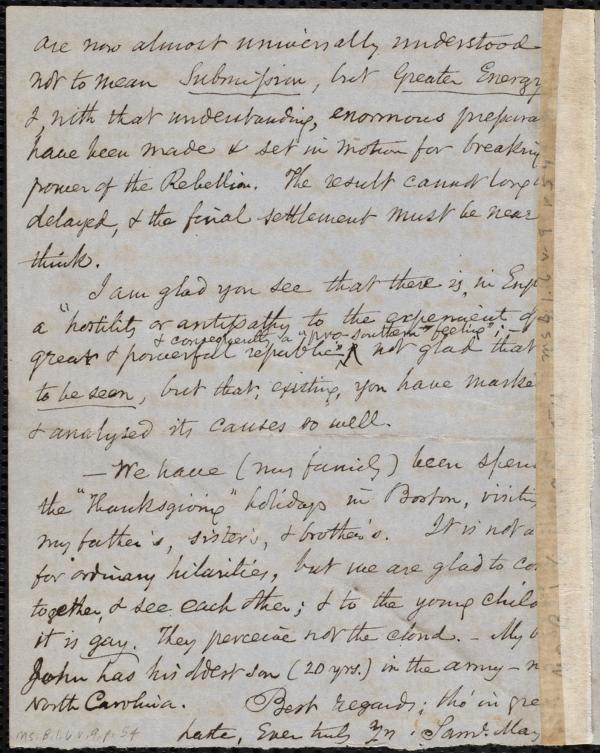 are now almost universally understood
not to mean Submission, but Greater Energy
& with that understanding, enormous prepara
have been made & set in motion for breaking
power of the Rebellion. The result cannot long
delayed, & the final settlement must be near
think.
I am glad you see that there is, in Eng
a "hostility or antipathy to the experiment of
& consequently a "pro-southern feeling";—
great & powerful republic" not glad that
to be seen, but that, existing, you have marke
& analysed its causes so well.
— We have (my family) been spen
the "Thanksgiving" holidays in Boston, visitin
my father's, sister's, & brother's. It is not a
for ordinary hilarities, but we are glad to co
together, & see each other; & to the young child
it is gay. They perceive not the cloud. — My b
John has his oldest son (20 yrs.) in the army — n
North Carolina. Best regards; tho' in gre
haste, Ever truly Yrs. Saml. May
Ms. B.1.6 v.9, p. 54